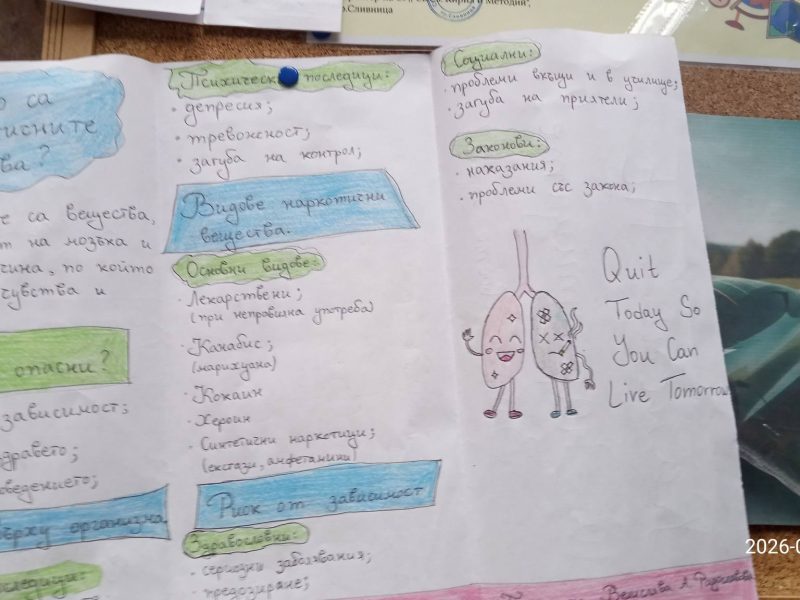 гр.Сливница
са
ките
ва?
са вещества,
на мозъка и
чина, по който
чувства и
опасни?
зависимост;
здравето;
поведението;
върху организма
Последици:
Психически последици:
· депресия;
· тревожност;
· загуба на контрол;
Видове наркотични
вещества.
Основни видове:
· Лекарствени;
(при неправилна употреба)
· Канабис;
(марихуана)
· Кокаин
· Хероин
· Синтетични наркотици;
(екстази, амфетамини)
Риск от зависимост
Здравословни:
· сериозни заболявания;
· предозиране;
Социални:
· проблеми вкъщи и в училище;
· загуба на приятели;
Законови:
· наказания;
· проблеми със закона;
Quit
Today So
You Can
Live Tomorrow
2026-0